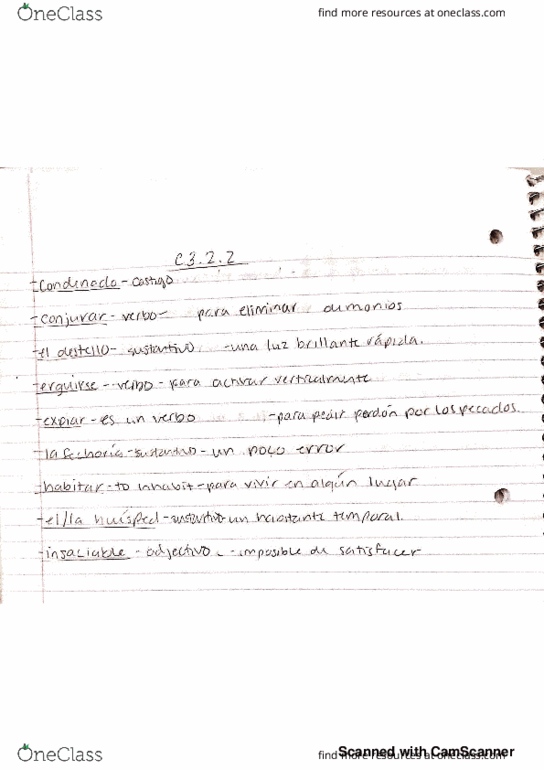 OneClass
find more resources at oneclass.com
C3.2.2
-Condenado - castigo
-conjurar - verbo - para eliminar dumonios
-el destello - sustantivo - una luz brillante rápida.
erguirse - verbo - para activar verticalmente
-expiar - es un verbo - para pedir perdón por los pecados.
-la fechoría - sustantivo - un poco error
habitar - to inhabit - para vivir en algún lugar
-el/la huísped - sustantivo un habitante temporal.
-insaciable - adjectivo - imposible de satisfacer
OneClass
find more resources at oneclass.com
Scanned with CamScanner